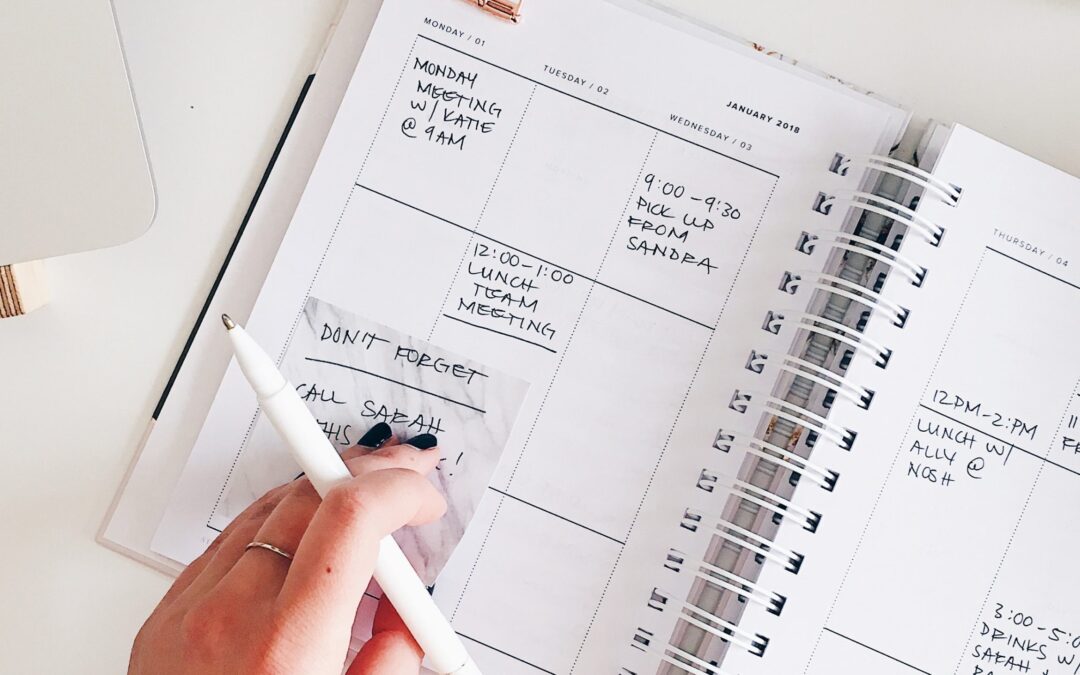 MONDAY / 01
MONDAY
MEETING
W/ KATIE
@ 9AM
TUESDAY / 02
12:00-1:00
LUNCH
TEAM
MEETING
JANUARY 2018
WEDNESDAY / 03
9:00-9:30
PICK UP
FROM
SANDRA
DON'T FORGET
CALL SARAH
THIS
!
THURSDAY / 04
12PM-2:PM
LUNCH W/
ALLY @
NOSH
3:00-5:0
DRINKS W/
SARAH